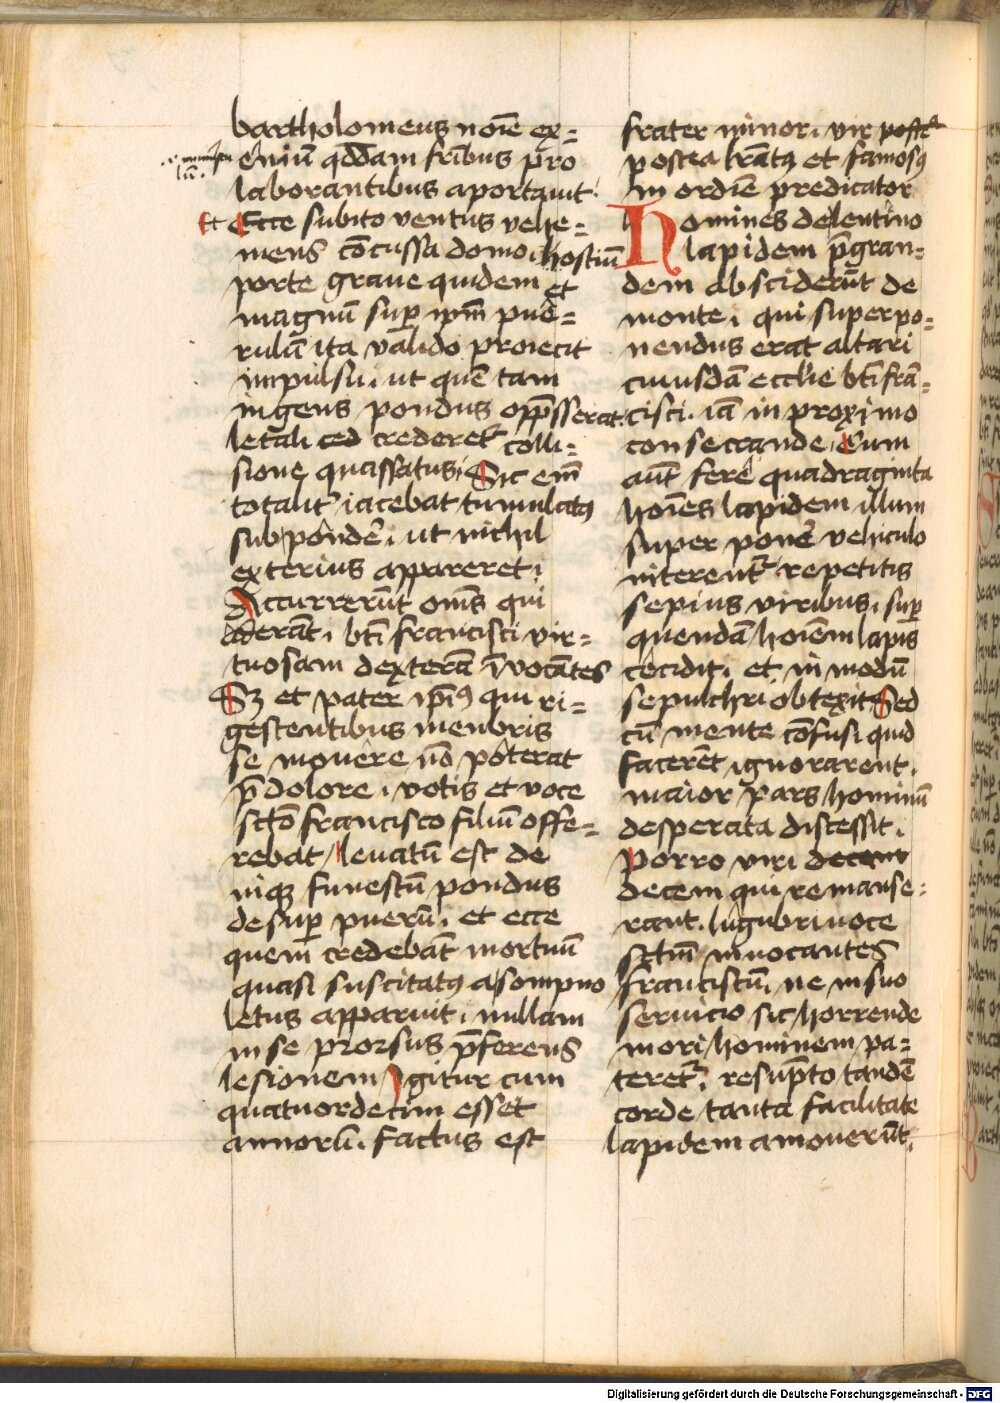 bartholomeus noīe ex=
eniū qđdam frībus pro
laborantibus aportauit.
Et Ecce subito ventus vehe=
mens cōcussa domo. hostiū
porte graue quidem et
magnū sup ipm̄ pue=
rulū ita valido proiecit
impulsu. ut quē tam
ingens pondus opp̄sserat.
letali ced crederet colli=
sione quassatus. Sic em̄
totalit' iacebat tumulatus
sub pondere. ut nichil
exterius appareret.
Accurrerūt om̄s qui
aderāt. bt̄i francisci vir=
tuosam dexterā īvocātes
Sz et pater ip̄ius qui ri=
gescentibus menbris
se mouere nō poterat
p̄ dolore. votis et voce
sctō francisco filiū offe=
rebat / leuatū est de
niqz funestū pondus
desup puerū. et ecce
quem credebāt mortuū
quasi suscitatus a sompno
letus apparuit. nullam
in se prorsus p̄ferens
lesionem Igitur cum
quatuordecim esset
annorū. factus est
frater minor. vir
postea lr̄atus et famosus
in ordīe predicator
Homines de lentino
lapidem p̄gran=
dem absciderūt de
monte. qui superpo=
nendus erat altari
cuiusdā ecclīe bt̄i frā=
cisci. iā in proximo
consecrande. Cum
aūt fere quadraginta
hoīes lapidem illum
super ponere vehiculo
niterent' repetitis
sepius viribus. sup
quendā hoīem lapis
cecidit. et in modū
sepulchri obtexit Sed
cū mente cōfusi quid
facerēt ignorarent.
maior pars hominū
desperata discessit.
Porro viri
decem qui remanse=
rant. lugubri uoce
sctm̄ inuocantes
franciscū. ne in suo
seruicio sic horrende
mori hominem pa=
teret'. resūpto tandē
corde tanta facilitate
lapidem amouerūt.
Digitalisierung gefördert durch die Deutsche Forschungsgemeinschaft - DFG